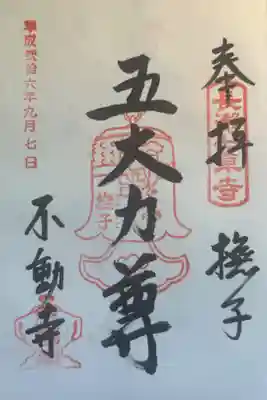 奉拝
撫子
五大力尊
撫子
不動寺
平成弐拾六年九月七日